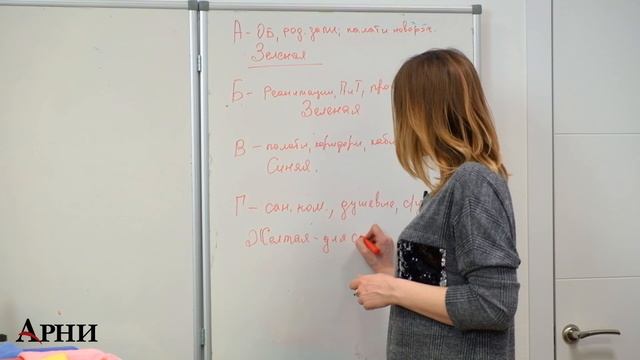 А - ОБ, род. залы; палаты новорож.
Зеленая
Б - Реанимации, ПиТ, про
Зеленая
В - палаты, коридоры, каби
Синяя.
Г - сан. ком., душевые, с/у
Желтая - для с
АРНИ